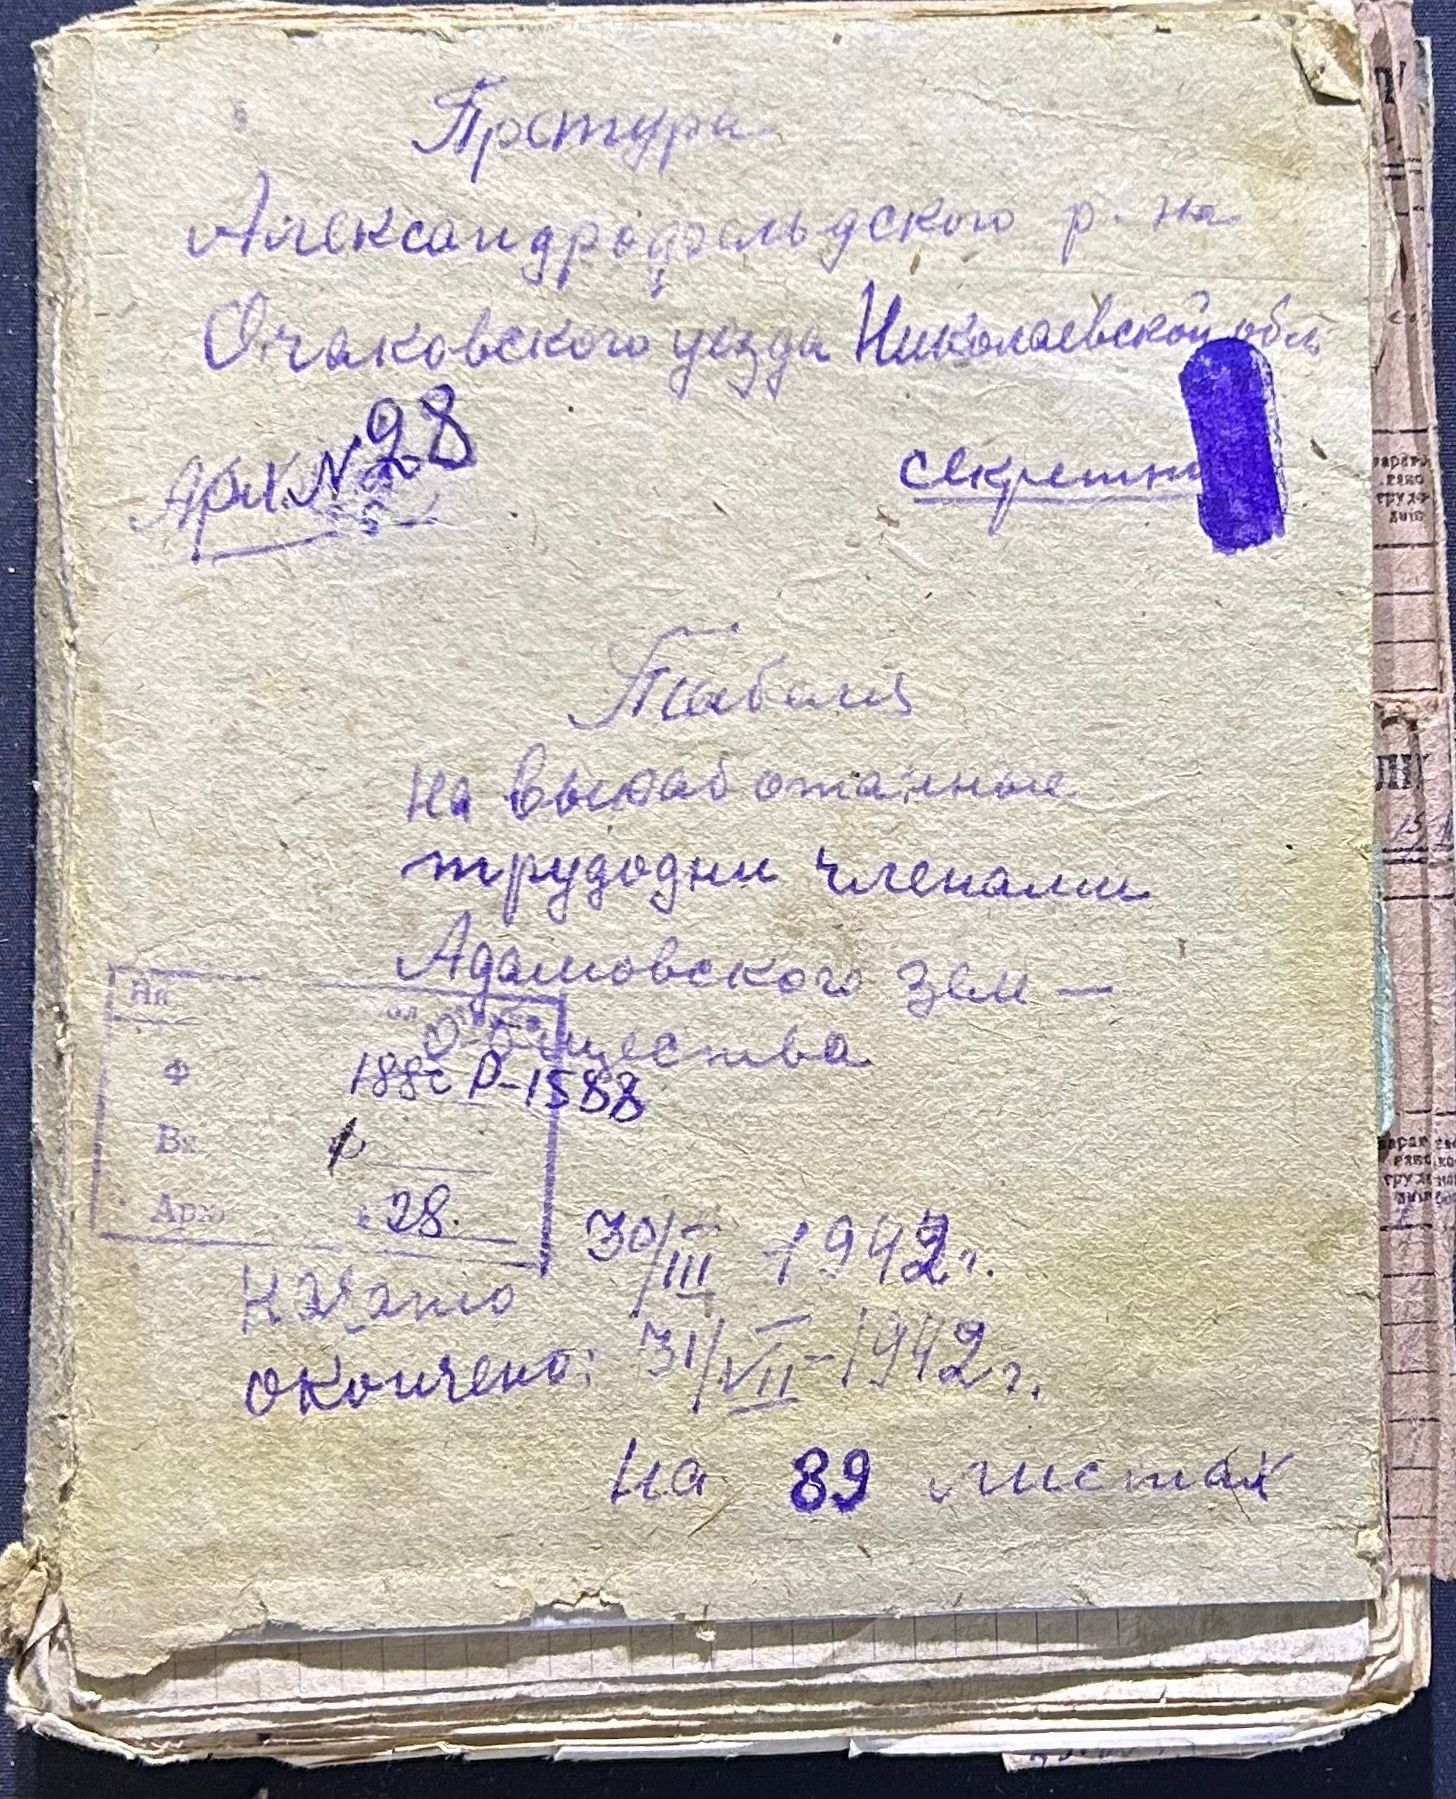 Претура
Александрфельдского р-на
Очаковского уезда Николаевской обл
Арх. № 28
секретно
Табеля
на выработанные
трудодни членами
Адамовского зем —
общества
Ф Р-1588
28.
начато 30/III 1942 г.
окончено: 31/VII-1942 г.
на 89 листах